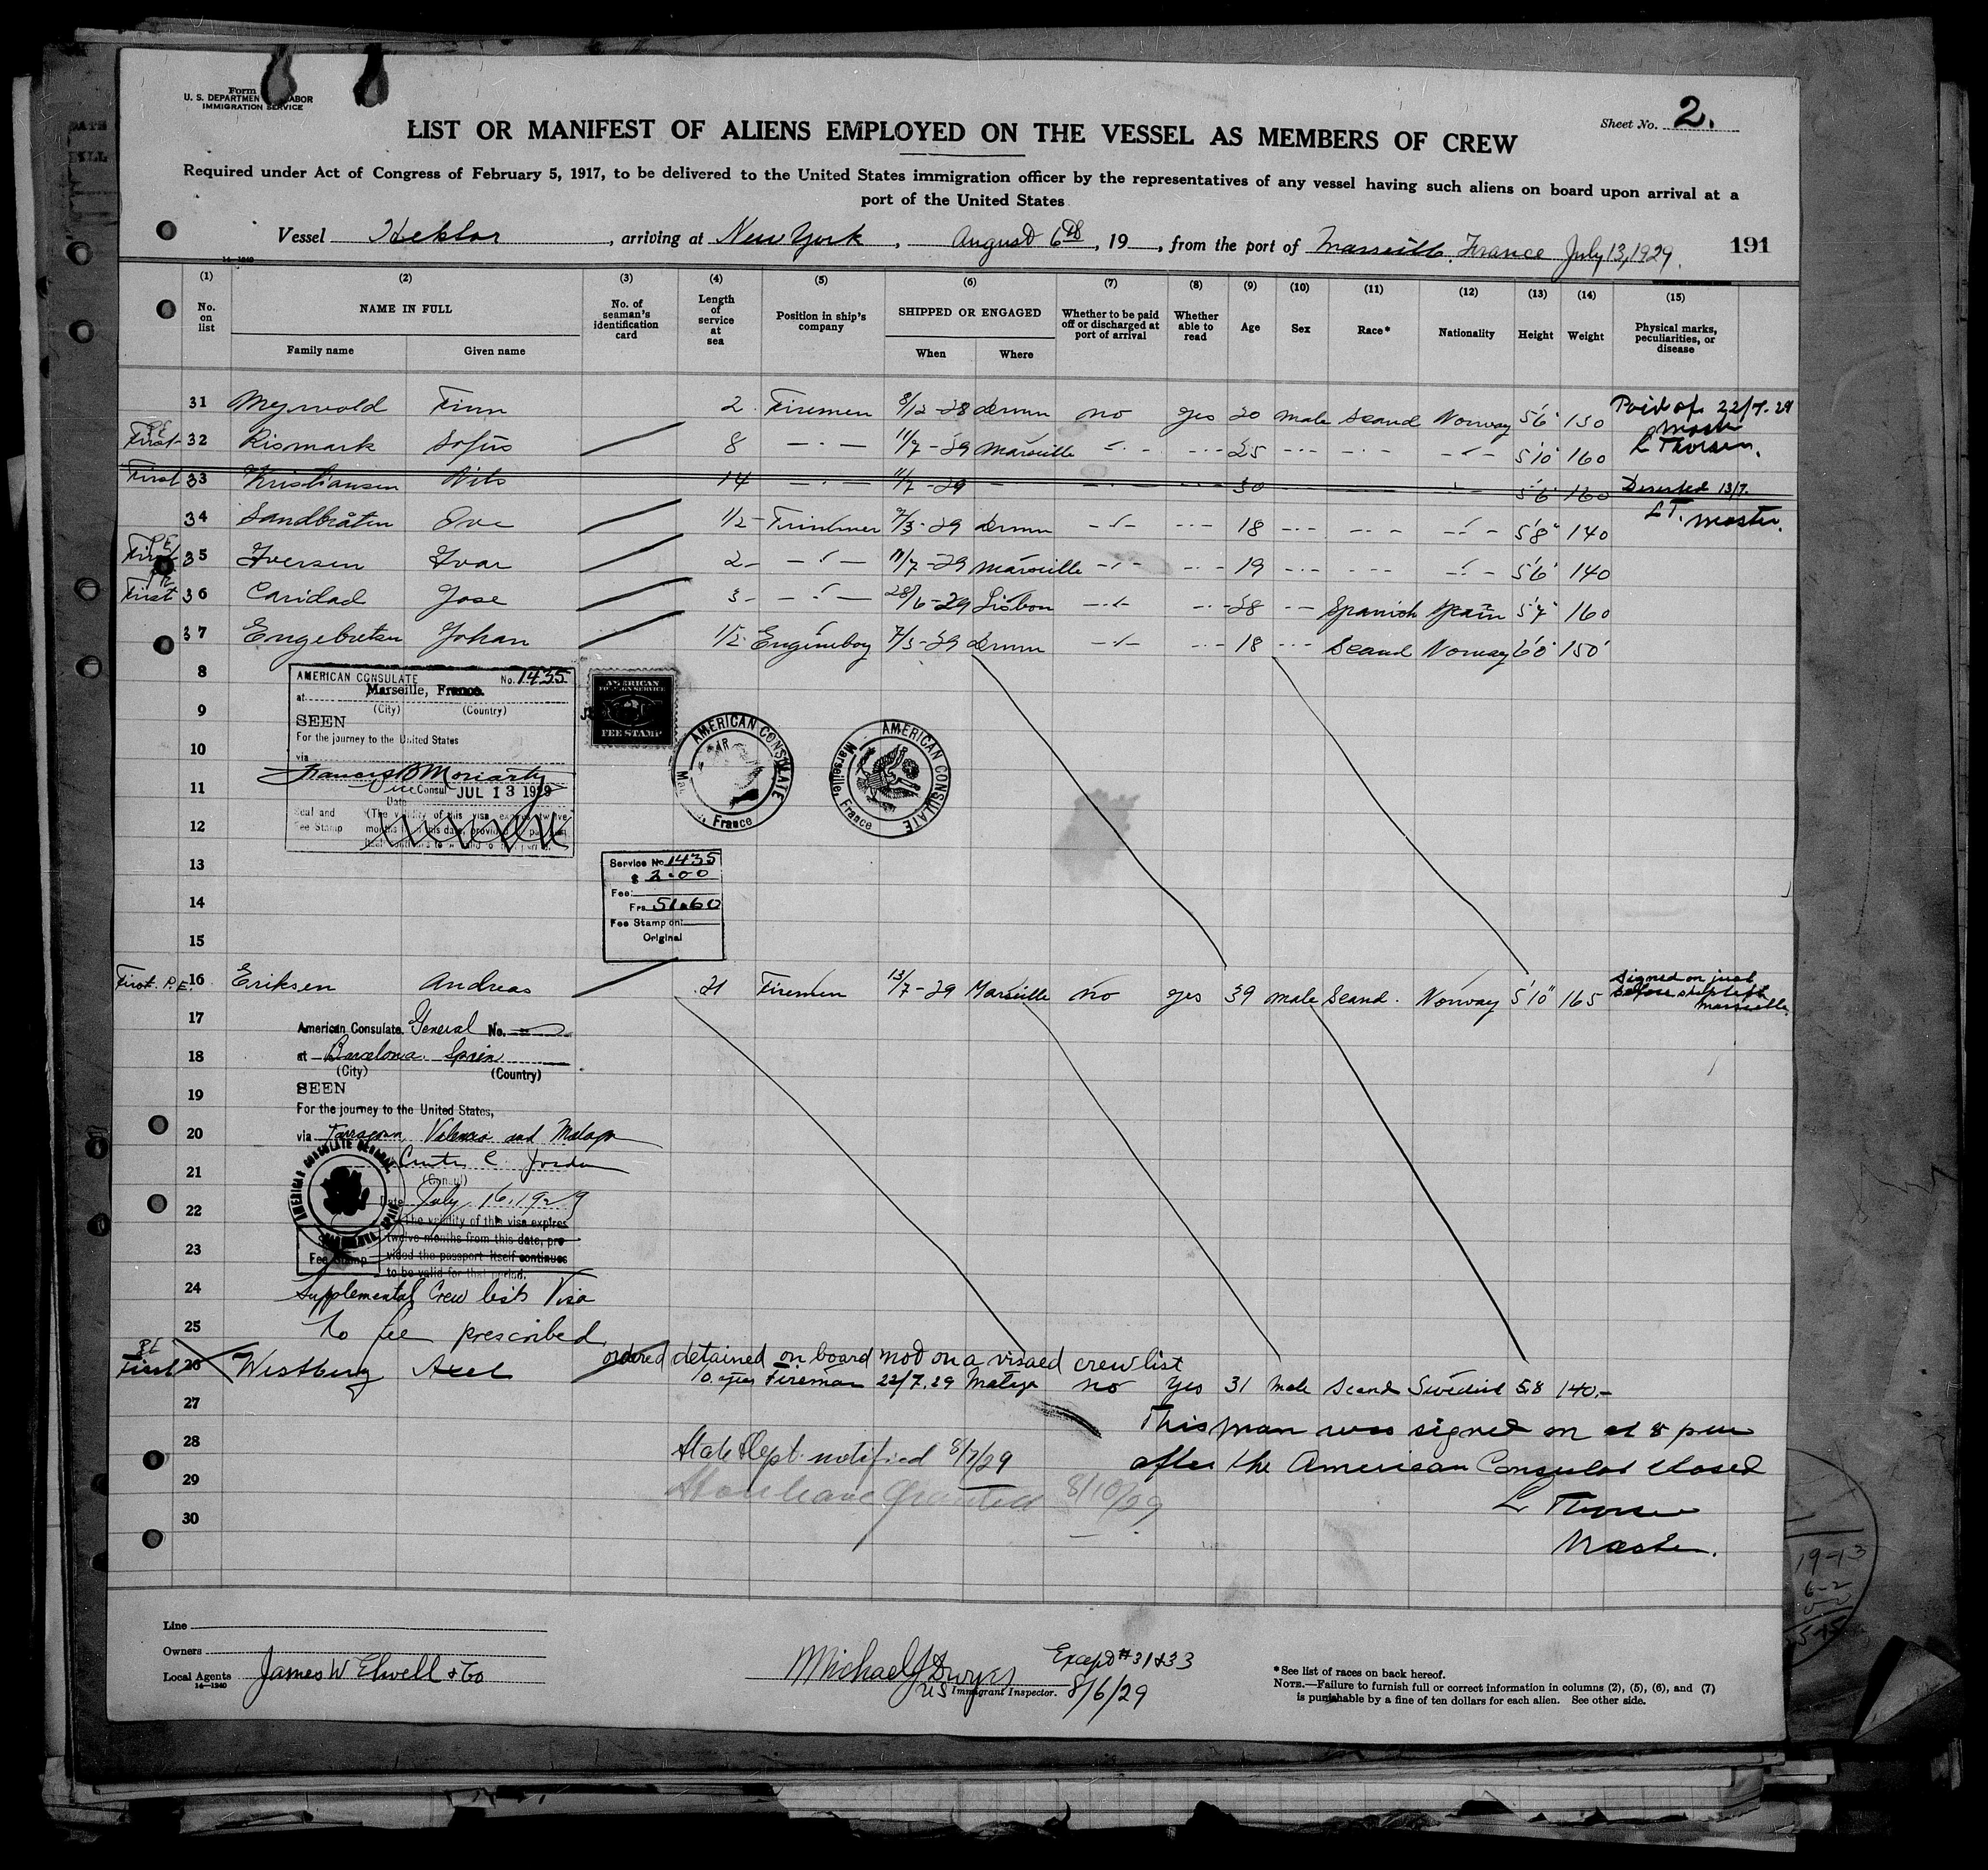 Form
U. S. DEPARTMENT LABOR
IMMIGRATION SERVICE
Sheet No. 2.
LIST OR MANIFEST OF ALIENS EMPLOYED ON THE VESSEL AS MEMBERS OF CREW
Required under Act of Congress of February 5, 1917, to be delivered to the United States immigration officer by the representatives of any vessel having such aliens on board upon arrival at a
port of the United States
Vessel Hektor, arriving at New York, August 6th, 19 , from the port of Marseille, France July 13, 1929. 191
14—1240
(1) (2) (3) (4) (5) (6) (7) (8) (9) (10) (11) (12) (13) (14) (15)
No. on list
NAME IN FULL
Family name Given name
No. of seaman's identification card
Length of service at sea
Position in ship's company
SHIPPED OR ENGAGED
When Where
Whether to be paid off or discharged at port of arrival
Whether able to read
Age
Sex
Race*
Nationality
Height
Weight
Physical marks, peculiarities, or disease
31 Finn 2 Firemen 8/12-28 no yes 20 male Scand Norway 5'6" 150 Paid of 22/7-29
Master
L Thorsen.
First P.E. 32 Rismark Sofus 8 — " — 11/7-29 Marseille - " - - " - 25 - " - - " - - " - 5'10" 160
First 33 Kristiansen Nils 14 — " — 11/7-29 — 30 5'6" 160 Deserted 13/7.
L T. Master.
34 Sandbråten Ove 1/2 - 7/3-29 - " - - " - 18 - " - - " - - " - 5'8" 140
First P.E. 35 Iversen Ivar 2 - — " — 11/7-29 Marseille - " - - " - 19 - " - - " - - " - 5'6" 140
First 36 Caridad Jose 3 - — " — 28/6-29 Lisbon - " - - " - 28 - " - Spanish Spain 5'7" 160
37 Engebretsen Johan 1/2 Engineboy 7/3-29 - " - - " - 18 - " - Scand Norway 6'0" 150
8
AMERICAN CONSULATE No. 1435
at Marseille, France.
(City) (Country)
AMERICAN
FOREIGN SERVICE
FEE STAMP
9
SEEN
For the journey to the United States
10
via
Francis B Moriarty
11
Vice Consul JUL 13 1929
Date
Seal and Fee Stamp
(The validity of this visa expires twelve
months from this date, provided
12
AMERICAN CONSULATE
Marseille, France
AMERICAN CONSULATE
Marseille, France
13
Service No. 1435
$ 2.00
Fee:
14
Frs 51.60
Fee Stamp on:
15
Original
First. P.E. 16 Eriksen Andreas 21 Firemen 13/7-29 Marseille no yes 39 male Scand. Norway 5'10" 165 Signed on just
before ship left
Marseille
17
American Consulate General No. —
18
at Barcelona Spain
(City) (Country)
19
SEEN
For the journey to the United States,
20
via Tarragona Valencia and Malaga
21
Curtis C. Jordan
(Consul)
Date July 16, 1929
22
AMERICAN CONSULATE GENERAL
(The validity of this visa expires
twelve months from this date, pro-
23
vided the passport itself continues
Fee Stamp
to be valid for that period.
24
Supplemental Crew list Visa
25
No fee prescribed
ordered detained on board not on a visaed crew list
First P.E. 26 Westberg Axel 10 years Fireman 22/7.29 Malaga no yes 31 Male Scand Swedish 5.8 140.-
27
This man was signed on at 8 pm
28
State Dept. notified 8/7/29
after the American Consulat closed
29
Shore leave Granted 8/10/29
L Thorsen
30
Master.
Line
Owners
Local Agents James W Elwell & Co
14—1240
Michael J Dwyer
US Immigrant Inspector.
Except #31&33
8/6/29
*See list of races on back hereof.
NOTE.—Failure to furnish full or correct information in columns (2), (5), (6), and (7)
is punishable by a fine of ten dollars for each alien. See other side.
19-13
6-2